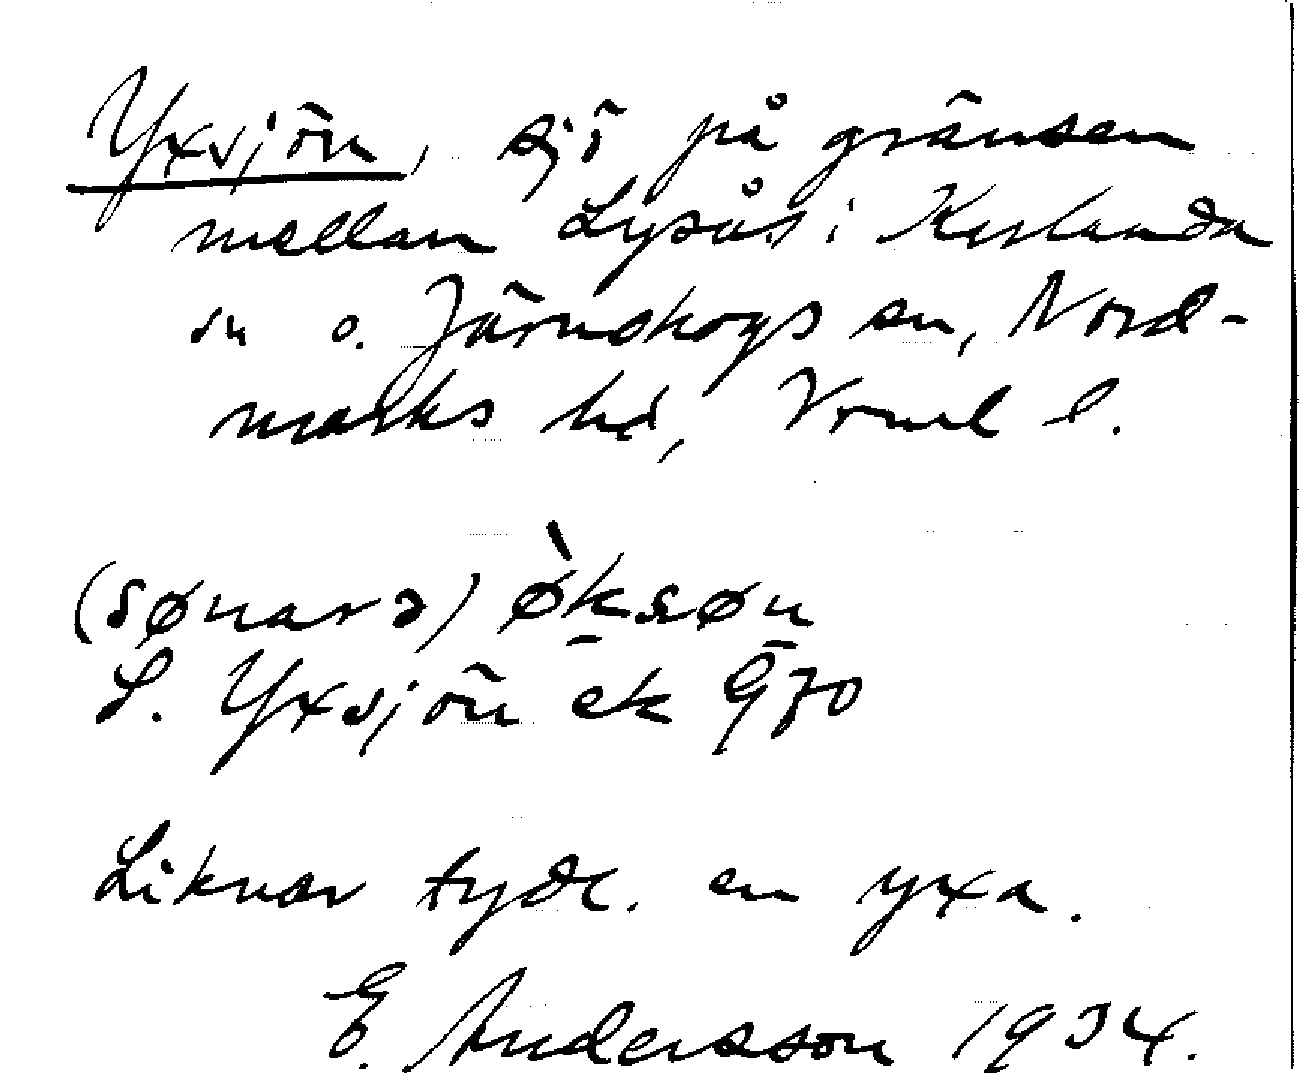 Yxsjön, sjö på gränsen
mellan Lysås i Karlanda
sn o. Järnskogs sn, Nord-
marks hd, Vrml l.
(sønarə) ø̀ksøn
S. Yxsjön ek 970
Liknar tydl. en yxa.
E. Andersson 1934.